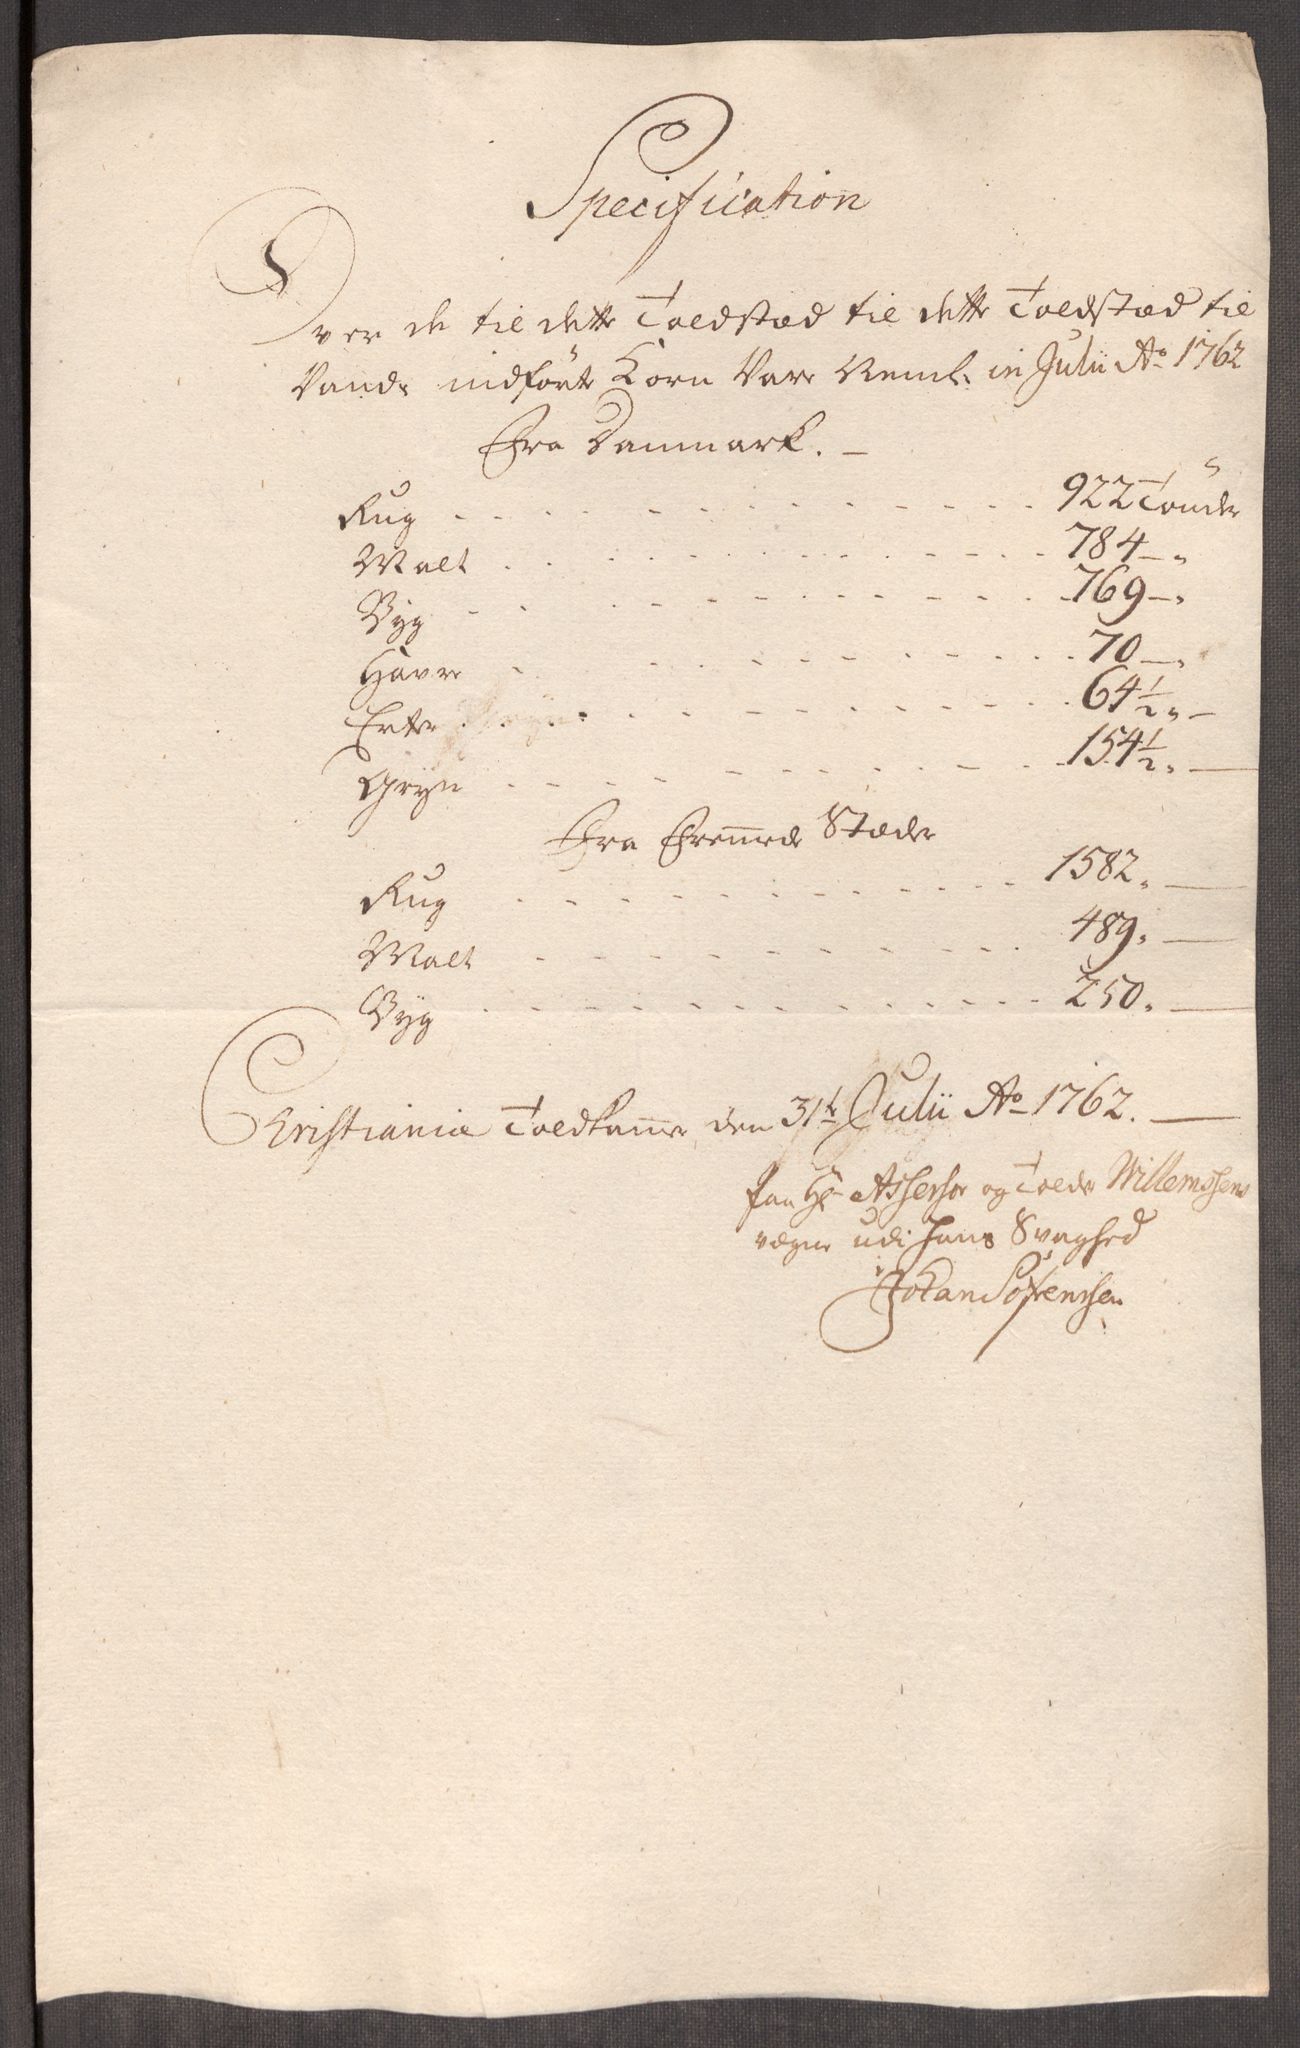 Specification
Over de til dette Toldstæd til dette Toldstæd til
Vands indførte Korn Vare Neml. in Julii Ao 1762
Fra Danmark. —
Rug . . . . . . . . . . . 922 Tønder
Malt . . . . . . . . . . . 784 — „
Byg . . . . . . . . . . . 769 — „
Havre . . . . . . . . . . . 70 — „
Erter . . . . . . . . . . . 64 1/2 „ —
Gryn . . . . . . . . . . . 154 1/2 „ —
Fra Fremede Stæder
Rug . . . . . . . . . . . 1582 „ —
Malt . . . . . . . . . . . 489 „ —
Byg . . . . . . . . . . . 250 „ —
Christiania Toldkamer den 31te Julii Ao 1762. —
Paa Hr Assessor og Tolder Willemssens
vegne udi hans Svaghed
Johan Sørenssen